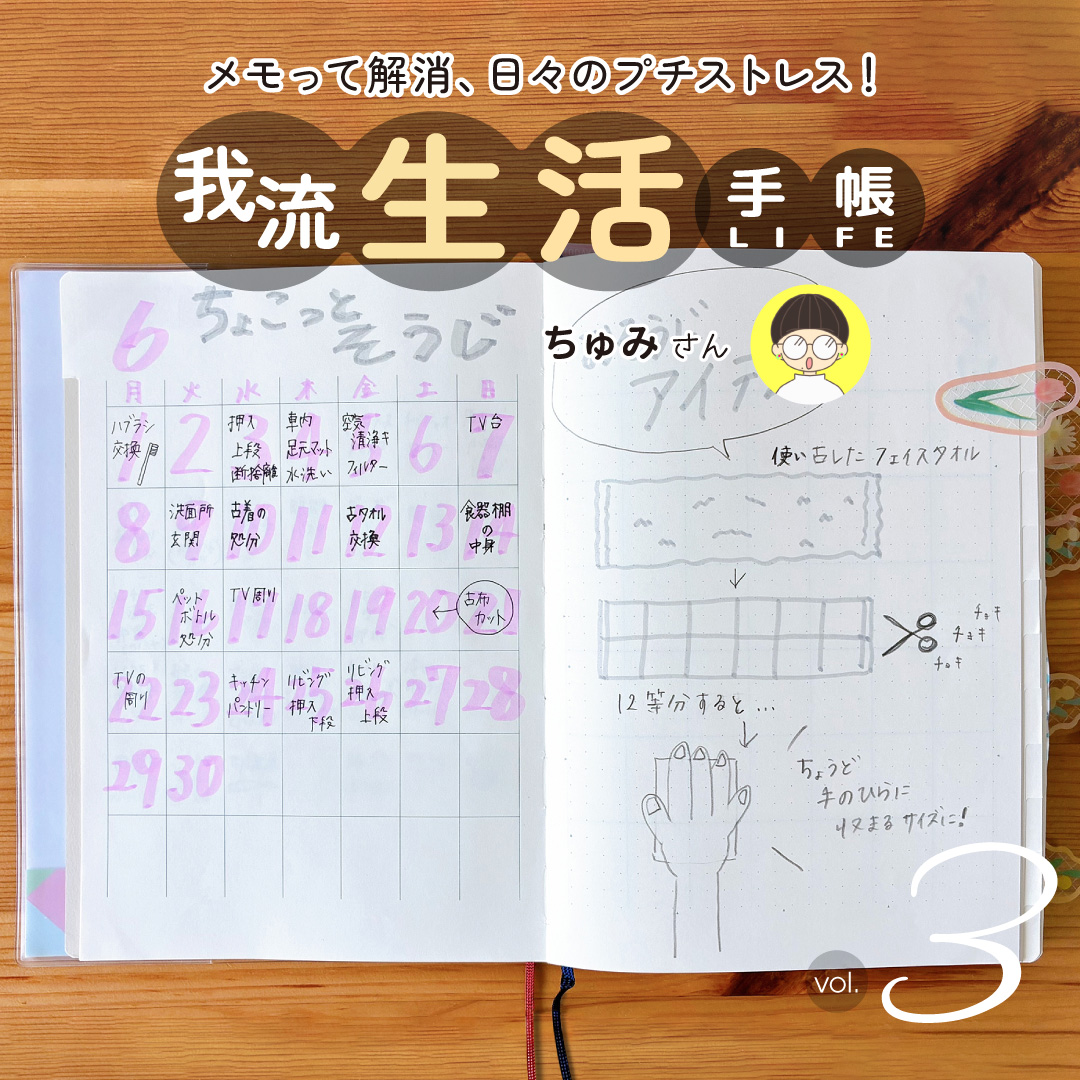 メモって解消、日々のプチストレス!
我流生活手帳
LIFE
ちゅみさん
6
ちょこっと
そうじ
月 火 水 木 金 土 日
1 2 3 4 5 6 7
ハブラシ
交換
押入
上段
断捨離
車内
足元マット
水洗い
空気
清浄キ
フィルター
TV台
8 9 10 11 12 13 14
洗面所
玄関
古着の
処分
古タオル
交換
食器棚
の
中身
15 16 17 18 19 20 21
ペット
ボトル
処分
TV周り
古布
カット
22 23 24 25 26 27 28
TVの
周り
キッチン
パントリー
リビング
押入
下段
リビング
押入
上段
29 30
アイテ
使い古したフェイスタオル
チョキ
チョキ
チョキ
12等分すると…
ちょうど
手のひらに
収まるサイズに!
vol. 3